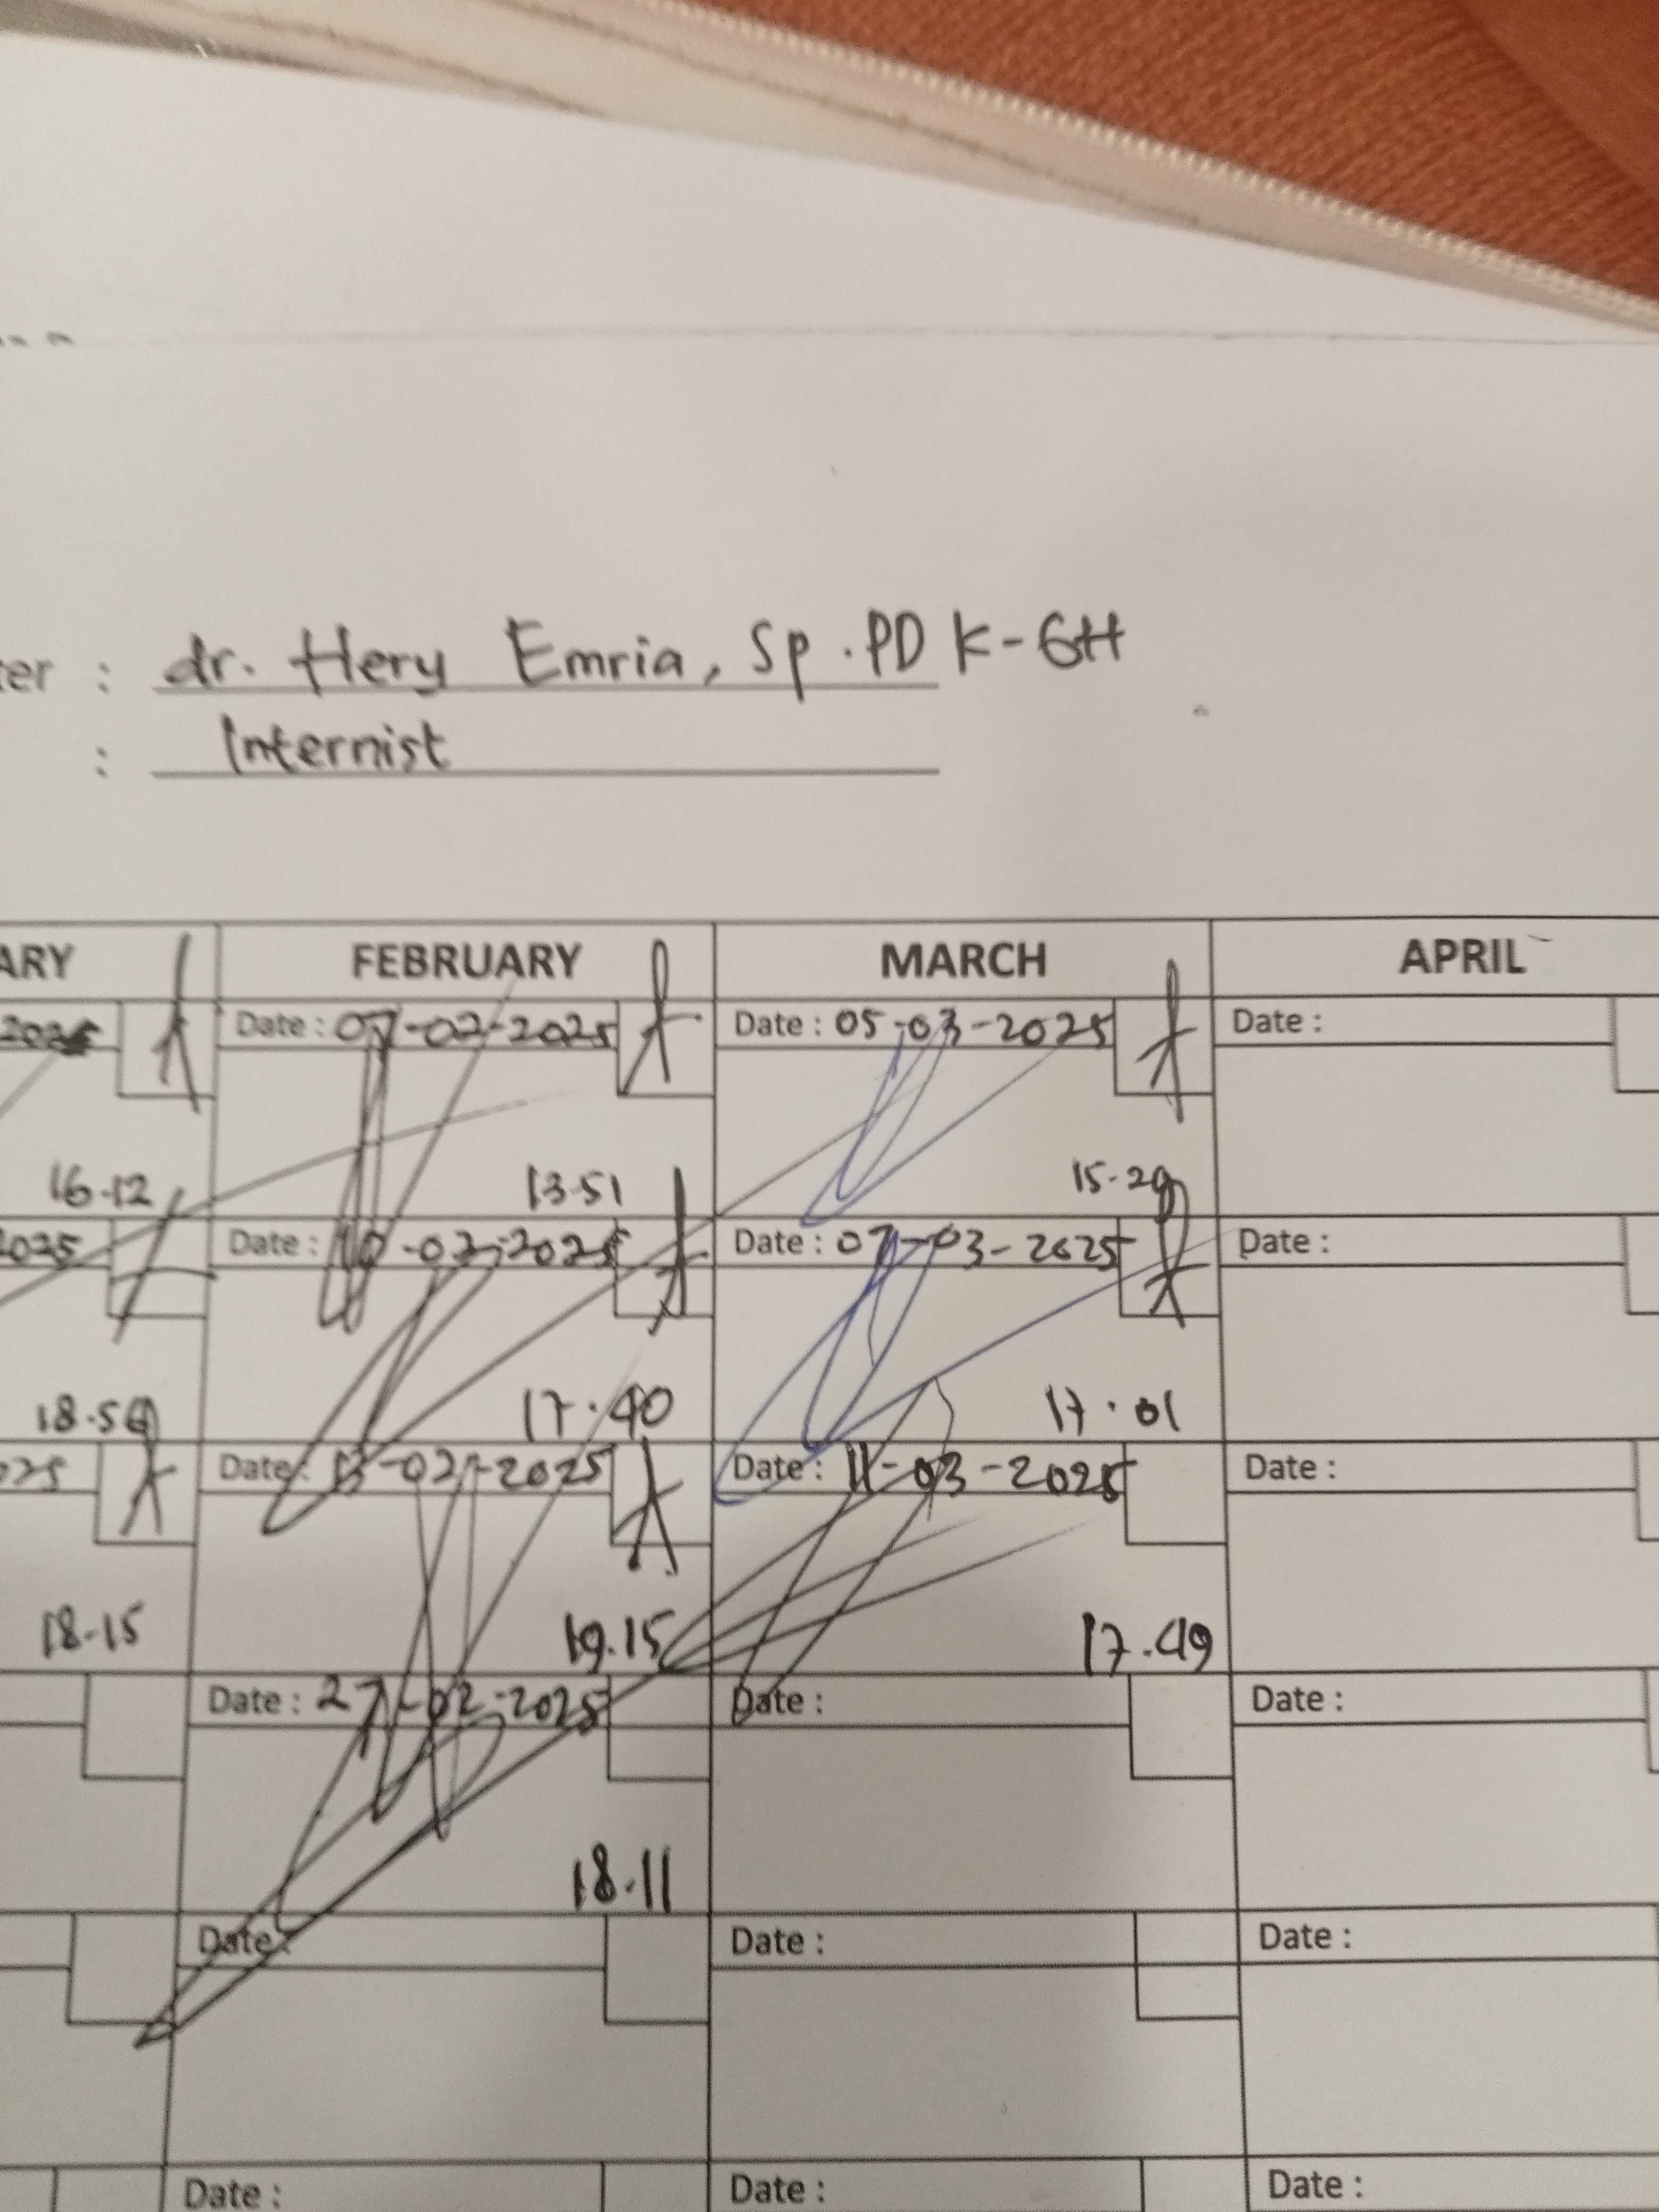 ter : dr. Hery Emria, Sp.PD K-GH
: Internist
ARY FEBRUARY MARCH APRIL
2025 Date : 07-02-2025 Date : 05-03-2025 Date :
16-12 13-51 15-29
2025 Date : 10-02-2025 Date : 07-03-2025 Date :
18-59 17.40 17.01
025 Date : 13-02-2025 Date : 11-03-2025 Date :
18-15 19.15 17.49
Date : 27-02-2025 Date : Date :
18.11
Date : Date : Date :
Date : Date : Date :